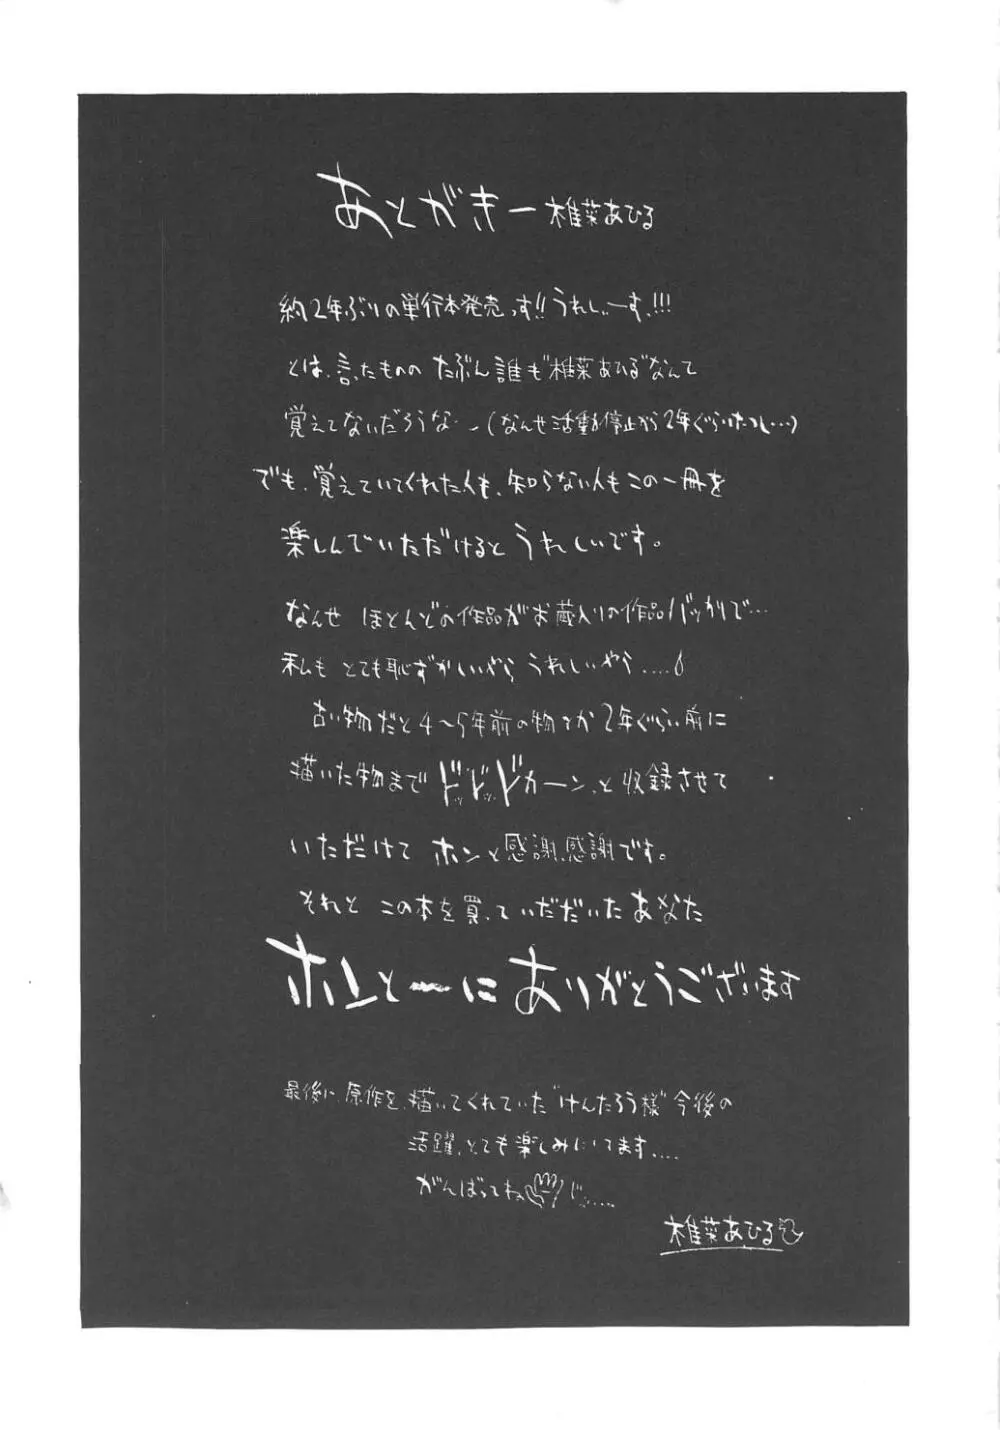 あとがきー椎菜あひる
約2年ぶりの単行本発売っす!!うれしぃーす!!!
とは、言ったものの たぶん誰も"椎菜あひる"なんて
覚えてないだろうな〜(なんせ活動停止から2年ぐらいたつし…)
でも、覚えていてくれた人も、知らない人もこの一冊を
楽しんでいただけると うれしいです。
なんせ ほとんどの作品がお蔵入りの作品バッカリで…
私も とても恥ずかしいやら うれしいやら.....
古い物だと4〜5年前の物とか 2年ぐらい前に
描いた物まで ドッドッドカーン、と収録させて
いただけて ホンと感謝、感謝です。
それと この本を買っていただいたあなた
ホンとーにありがとうございます
最後に、原作を、描いてくれていた"けんたろう様"今後の
活躍、とても楽しみにしてます....
がんばってね
椎菜あひる